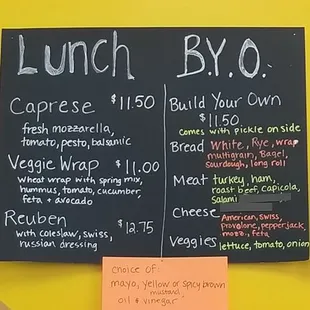 Lunch
Caprese $11.50
fresh mozzarella,
tomato, pesto, balsamic
Veggie Wrap $11.00
wheat wrap with spring mix,
hummus, tomato, cucumber
feta + avocado
Reuben $12.75
with coleslaw, swiss,
russian dressing
B.Y.O.
Build Your Own
$11.50
comes with pickle on side
Bread White, Rye, wrap
multigrain, Bagel,
Sourdough, long roll
Meat turkey, ham,
roast beef, capicola,
Salami
Cheese American, swiss,
Provolone, pepperjack,
mozz, feta
Veggies lettuce, tomato, onion
choice of:
mayo, yellow or spicy brown
mustard
oil + vinegar